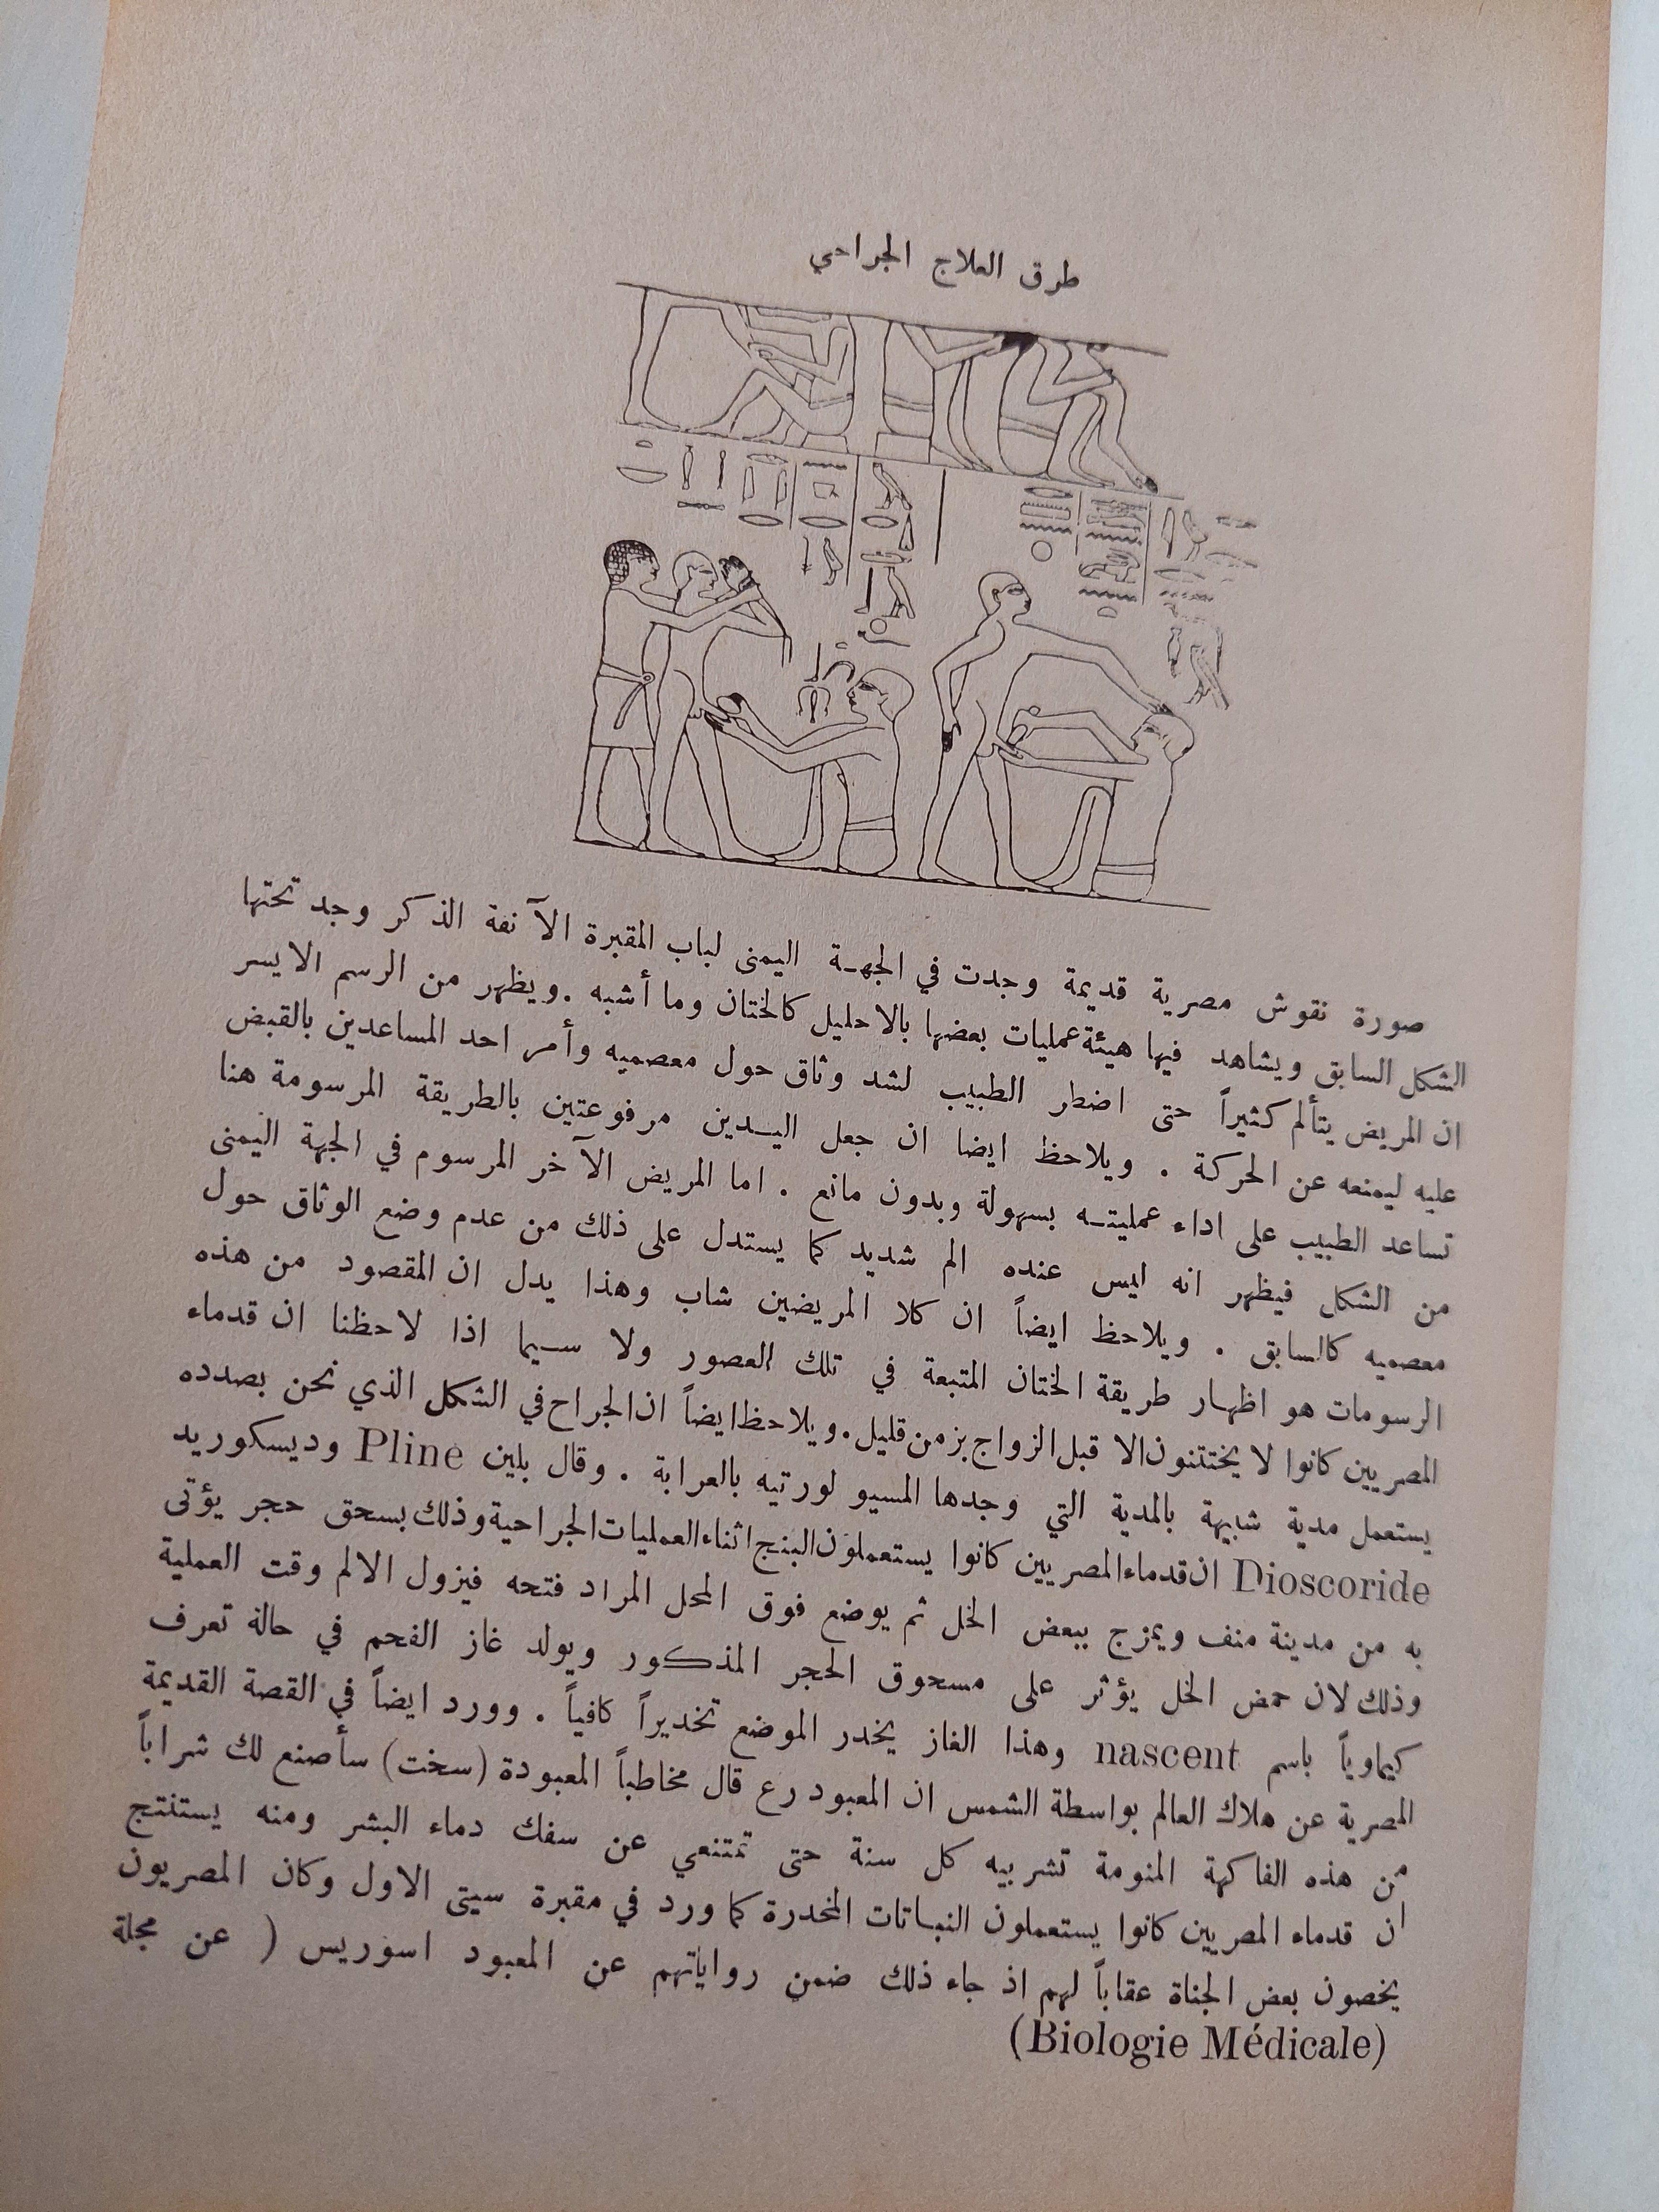 طرق العلاج الجراحي
صورة نقوش مصرية قديمة وجدت في الجهة اليمنى لباب المقبرة الآنفة الذكر وجد تحتها
الشكل السابق ويشاهد فيها هيئة عمليات بعضها بالاحليل كالختان وما أشبه . ويظهر من الرسم الايسر
ان المريض يتألم كثيراً حتى اضطر الطبيب لشد وثاق حول معصميه وأمر احد المساعدين بالقبض
عليه ليمنعه عن الحركة . ويلاحظ ايضا ان جعل اليدين مرفوعتين بالطريقة المرسومة هنا
تساعد الطبيب على اداء عمليته بسهولة وبدون مانع . اما المريض الآخر المرسوم في الجهة اليمنى
من الشكل فيظهر انه ليس عنده الم شديد كما يستدل على ذلك من عدم وضع الوثاق حول
معصميه كالسابق . ويلاحظ ايضاً ان كلا المريضين شاب وهذا يدل ان المقصود من هذه
الرسومات هو اظهار طريقة الختان المتبعة في تلك العصور ولا سيما اذا لاحظنا ان قدماء
المصريين كانوا لا يختتنون الا قبل الزواج بزمن قليل . ويلاحظ ايضاً ان الجراح في الشكل الذي نحن بصدده
يستعمل مدية شبيهة بالمدية التي وجدها المسيو لورتيه بالعرابة . وقال بلين Pline وديسكوريد
Dioscoride ان قدماء المصريين كانوا يستعملون البنج اثناء العمليات الجراحية وذلك بسحق حجر يؤتى
به من مدينة منف ويمزج ببعض الخل ثم يوضع فوق المحل المراد فتحه فيزول الالم وقت العملية
وذلك لان حمض الخل يؤثر على مسحوق الحجر المذكور ويولد غاز الفحم في حالة تعرف
كيماوياً باسم nascent وهذا الغاز يخدر الموضع تخديراً كافياً . وورد ايضاً في القصة القديمة
المصرية عن هلاك العالم بواسطة الشمس ان المعبود رع قال مخاطباً المعبودة (سخت) سأصنع لك شراباً
من هذه الفاكهة المنومة تشربيه كل سنة حتى تمتنعي عن سفك دماء البشر ومنه يستنتج
ان قدماء المصريين كانوا يستعملون النباتات المخدرة كما ورد في مقبرة سيتى الاول وكان المصريون
يخصون بعض الجناة عقاباً لهم اذ جاء ذلك ضمن رواياتهم عن المعبود اسوريس ( عن مجلة
(Biologie Médicale)